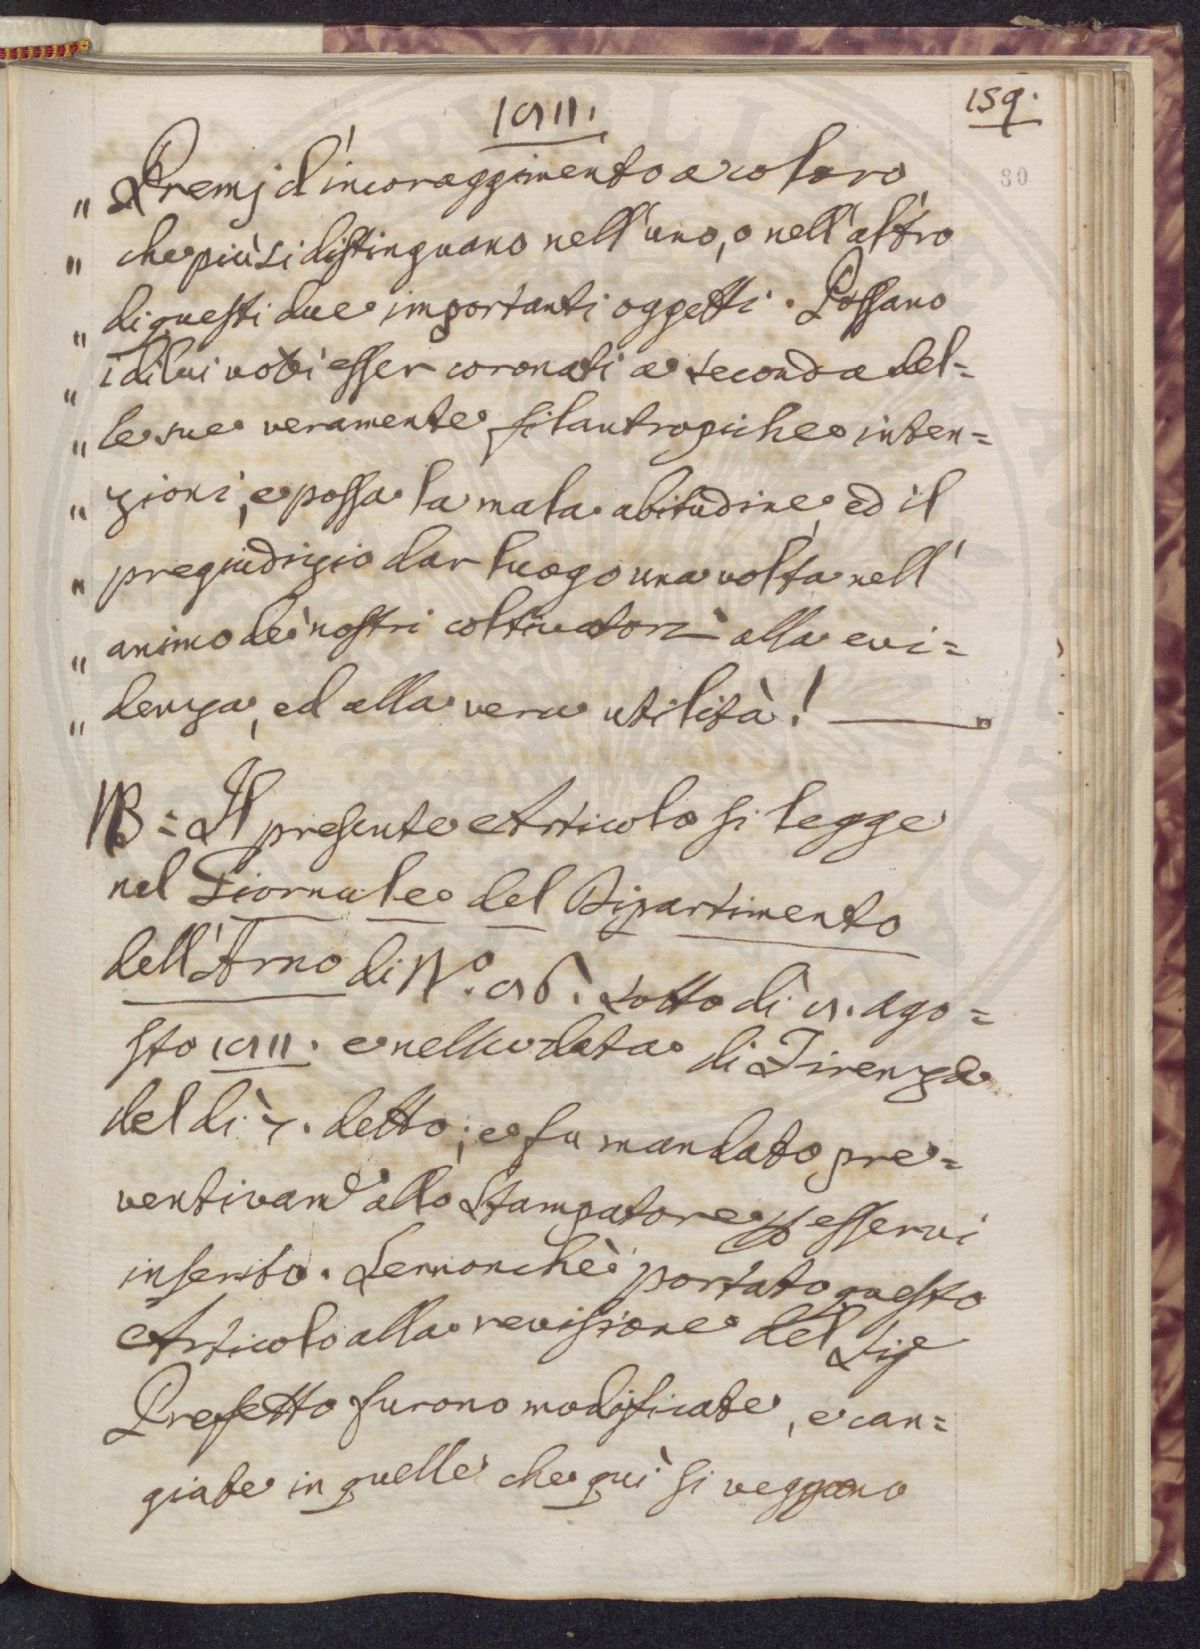 1811.
159.
80
„ Premj d'incoraggimento a coloro,
„ che più si distinguano nell'uno, o nell'altro
„ di questi due importanti oggetti. Possano
„ i di lui voti esser coronati a seconda del=
„ le sue veramente filantropiche inten=
„ zioni, e possa la mala abitudine, ed il
„ pregiudizio dar luogo una volta nell'
„ animo de' nostri coltivatori alla evi=
„ denza, ed alla vera utilità!
NB = Il presente Articolo si legge
nel Giornale del Dipartimento
dell'Arno di N.° 96. sotto dì 8. Ago=
sto 1811. e nella data di Firenze
del dì 7. detto; e fu mandato pre=
ventivam.e allo Stampatore p esservi
inserito. Sennonchè portato questo
Articolo alla revisione del Sig.e
Prefetto furono modificate, e can=
giate in quelle che quì si veggono